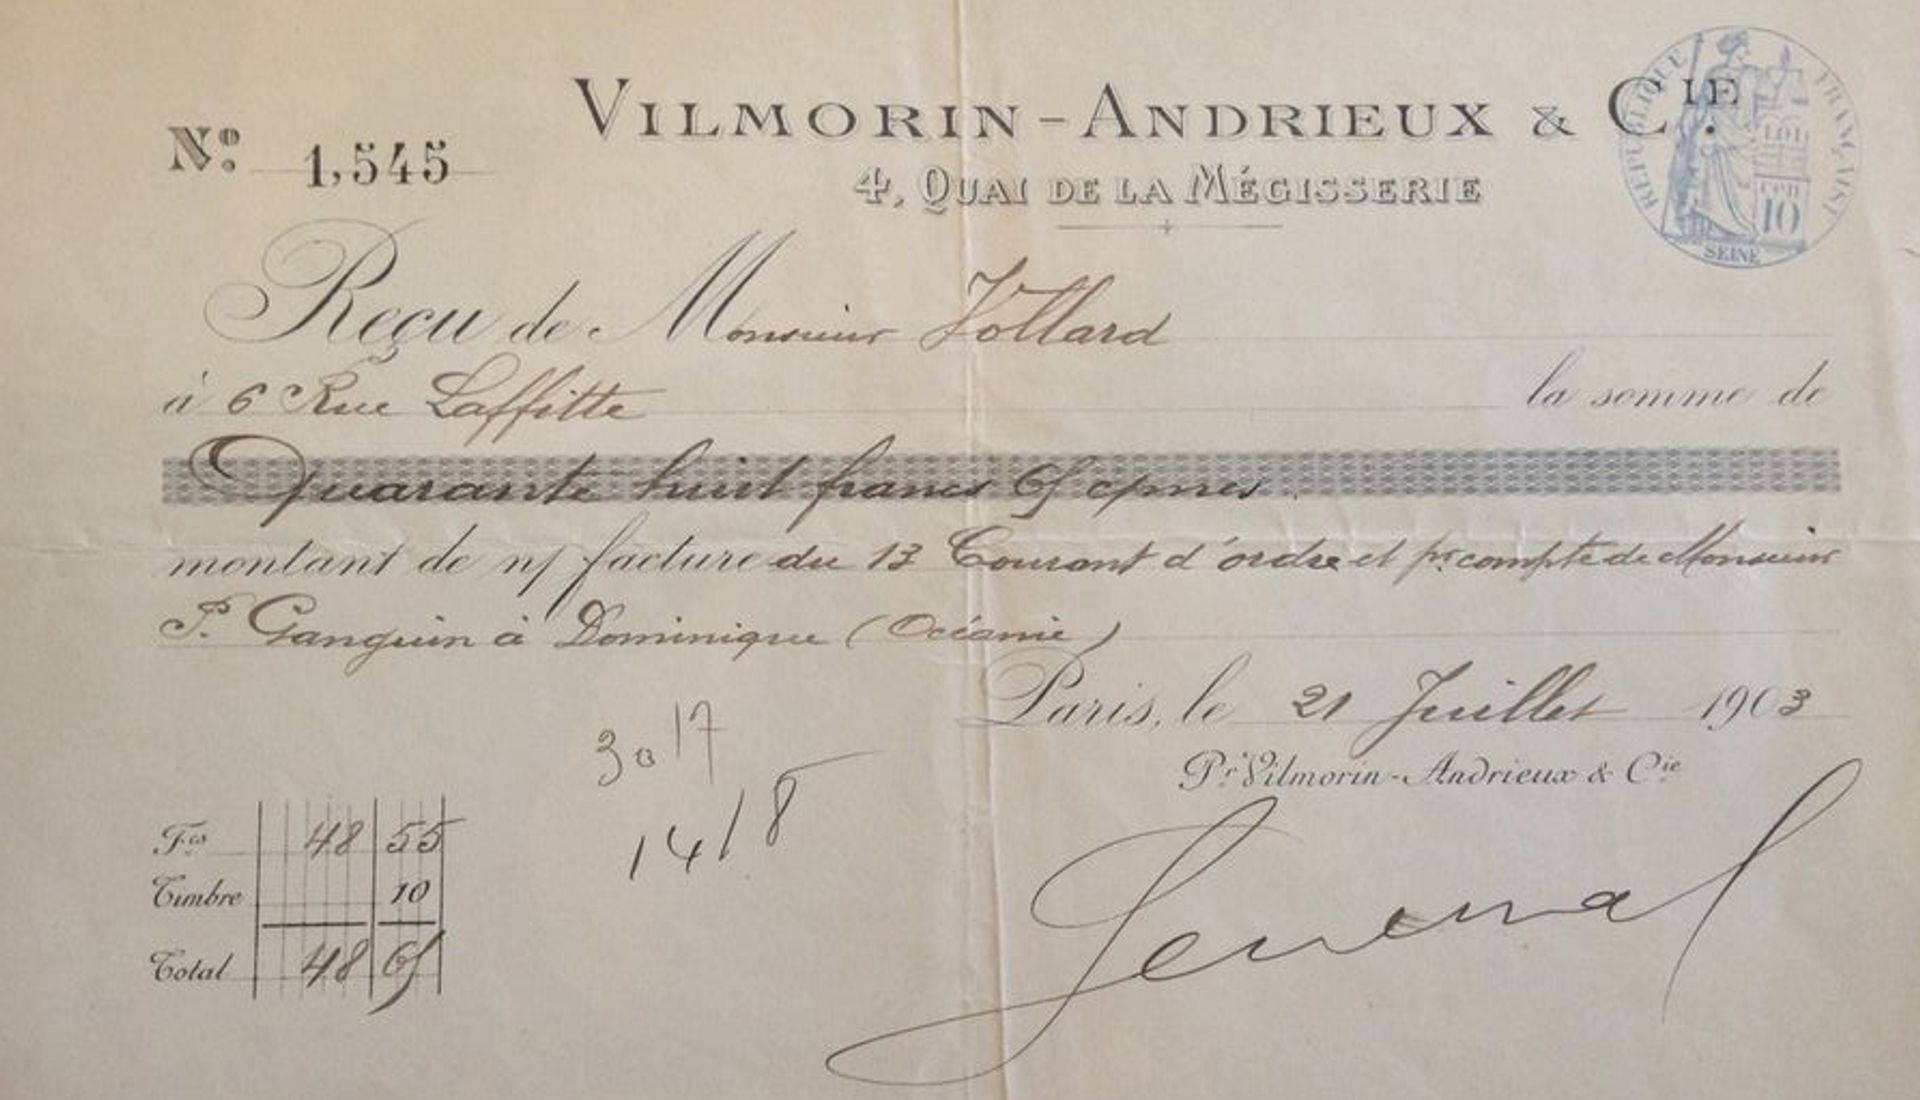 VILMORIN-ANDRIEUX & CIE.
Nº. 1,545
4, QUAI DE LA MÉGISSERIE
RÉPUBLIQUE FRANÇAISE
10
SEINE
Reçu de Monsieur Vollard
à 6 Rue Laffitte la somme de
Quarante huit francs 65 cmes.
montant de n/ facture du 13 Courant d'ordre et pr. compte de Monsieur
P. Ganguin à Dominique (Océanie)
Paris, le 21 Juillet 1903
Pr. Vilmorin-Andrieux & Cie
30 17
14/8
Fcs 48 55
Timbre 10
Total 48 65